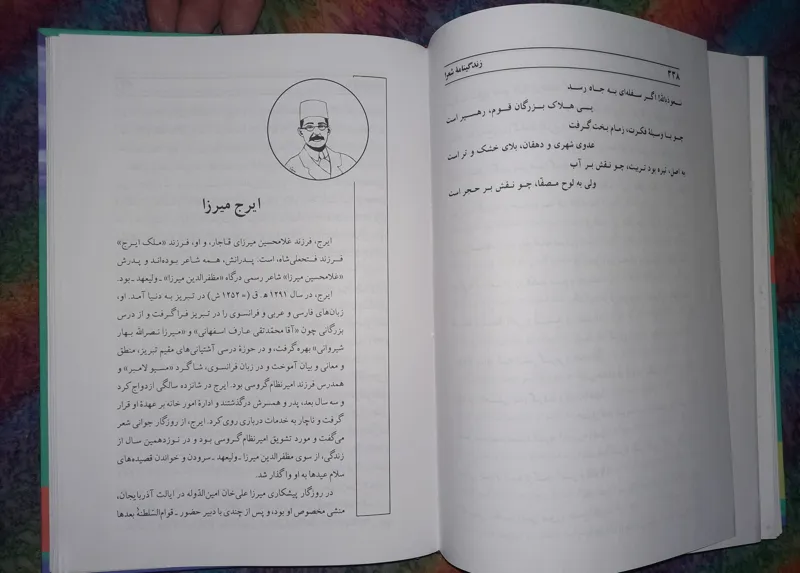 ۲۳۸
زندگینامهٔ شعرا
نعوذبالله! اگر سفله‌ای به جاه رسد
پسی هلاک بزرگان قوم، رهسپر است
چو با وسیلهٔ فکرت، زمام بخت گرفت
عدوی شهری و دهقان، بلای خشک و تر است
به اصل، تیره بود تربیت، چو نقش بر آب
ولی به لوح مصفّا، چو نقش بر حجر است
ایرج میرزا
ایرج، فرزند غلامحسین میرزای قاجار، و او، فرزند «ملک ایرج»
فرزند فتحعلی‌شاه، است. پدرانش، همه شاعر بوده‌اند و پدرش
«غلامحسین میرزا» شاعر رسمی درگاه «مظفرالدین میرزا» ـ ولیعهد ـ بود.
ایرج، در سال ۱۲۹۱ ه‍. ق (= ۱۲۵۲ ش) در تبریز به دنیا آمد. او،
زبان‌های فارسی و عربی و فرانسوی را در تبریز فراگرفت و از درس
بزرگانی چون «آقا محمّدتقی عارف اصفهانی» و «میرزا نصرالله بهار
شیروانی» بهره گرفت، و در حوزهٔ درسی آشتیانی‌های مقیم تبریز، منطق
و معانی و بیان آموخت و در زبان فرانسوی، شاگرد «مسیو لامبر» و
همدرس فرزند امیرنظام گروسی بود. ایرج در شانزده سالگی ازدواج کرد
و سه سال بعد، پدر و همسرش درگذشتند و ادارهٔ امور خانه بر عهدهٔ او قرار
گرفت و ناچار به خدمات درباری روی کرد. ایرج، از روزگار جوانی شعر
می‌گفت و مورد تشویق امیرنظام گروسی بود و در نوزدهمین سال از
زندگی، از سوی مظفرالدین میرزا ـ ولیعهد ـ سرودن و خواندن قصیده‌های
سلام عیدها به او واگذار شد.
در روزگار پیشکاری میرزا علی‌خان امین‌الدّوله در ایالت آذربایجان،
منشی مخصوص او بود، و پس از چندی با دبیر حضور ـ قوام‌السّلطنهٔ بعدها